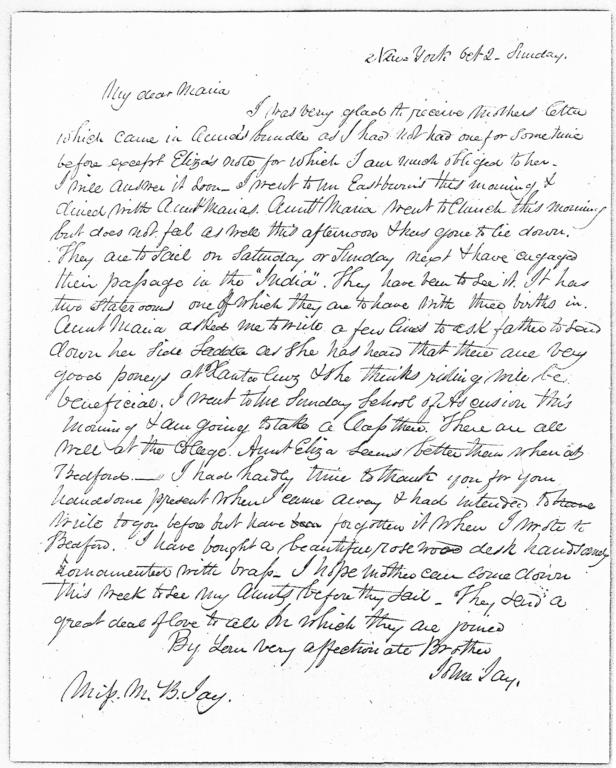 New York Oct 2 - Sunday.
My dear Maria
I was very glad to receive Mothers letter
which came in Anna's bundle as I had not had one for some time
before except Eliza's note for which I am much obliged to her.
I will answer it soon - I went to Mr Eastburn's this morning &
dined with Aunt Marias. Aunt Maria went to Church this morning
but does not feel as well this afternoon & has gone to lie down.
They are to sail on Saturday or Sunday next & have engaged
their passage in the "India". They have been to see it. It has
two staterooms one of which they are to have with three births in.
Aunt Maria asked me to write a few lines to ask father to send
down her side Saddle as she has heard that there are very
good poneys at Santa Cruz & she thinks riding will be
beneficial. I went to the Sunday School of Ascension this
morning & am going to take a Class there. There are all
well at the Colege. Aunt Eliza seems better than when at
Bedford. — I had hardly time to thank you for your
handsome present when I came away & had intended to have
write to you before but have been forgotten it when I wrote to
Bedford. I have bought a beautiful rose wood desk handsomely
ornamented with brass - I hope mother can come down
this week to see my Aunts before they sail - They send a
great deal of love to all in which they are joined
By Your very affectionate Brother
John Jay.
Miss M. B. Jay.